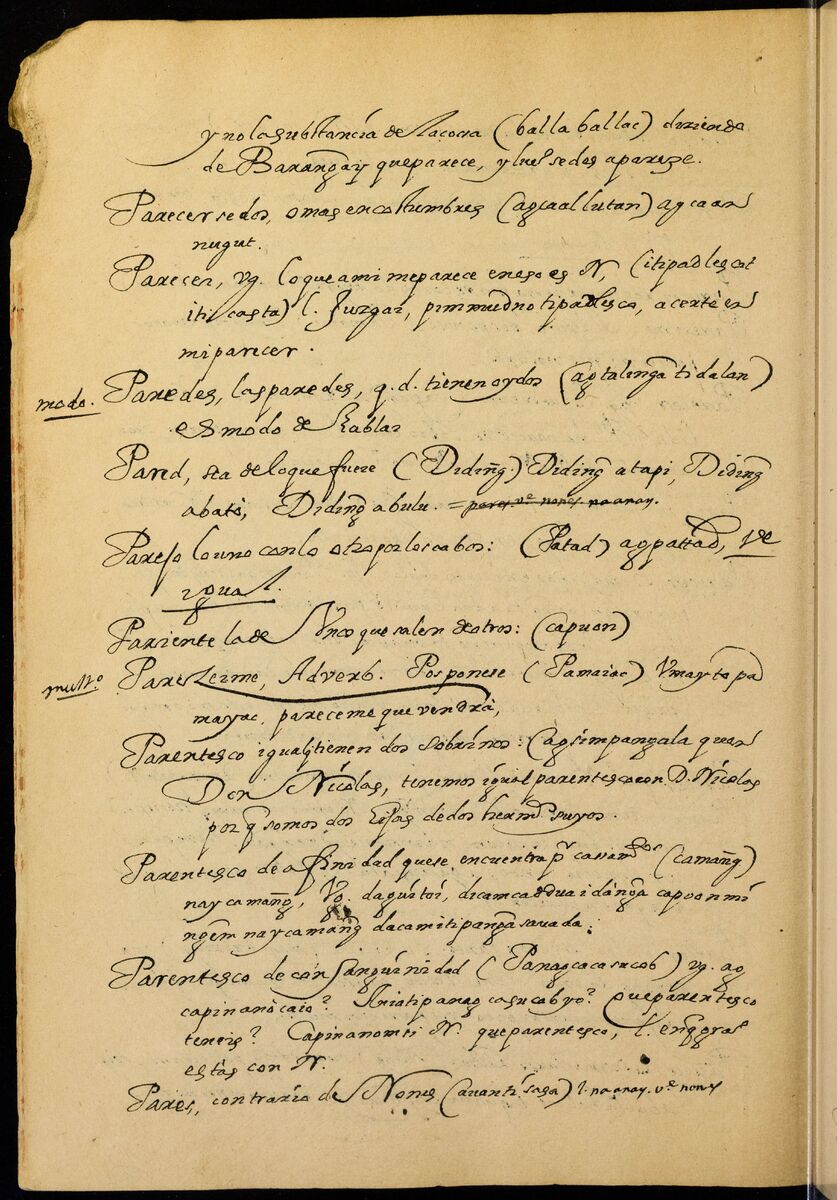 y no la substancia de la cosa (balla ballac) diziendo
de Barangay que parece, y luego se desaparece.
Parecerse dos, o mas en costumbres (agcaallutan) agcaan
nugut.
Parecer, vg. lo que a mi me parece en eso es N, (iti padles cat
iti casta) l. Juzgar, pimmudno ti padlesco, acerté en
mi parecer.
modo. Paredes, las paredes, q. d. tienen oydos (agtalinga ti dalan)
es modo de hablar
Pared, sea de lo que fuere (Diding̃) Diding̃ a tapi, Diding̃
a bató, Diding̃ a bulu. = pares. ve nones. no anay.
Parejo lo uno con lo otro por los cabos: (Patad) agpattad, ve
igual.
Pariente la de Unco que salen de otros: (capuon)
mult.o Pareszeime, Adverb. Posponese (Pamaiac) Umayta pa
mayac, pareceme que vendrà,
Parentesco igual tienen dos sobrinos: (agsimpangcala quen
Don Nicolas, tenemos igual parentesco con D. Nicolas
por q̃ somos dos hijas de dos hermos suyos.
Parentesco de afinidad que se encuentra pr casamtos (camang̃)
naycamang̃, Vg. daguitoi, dicamcadduaidanga capuonmi
ngem naycamang̃ dacami ti panga sauada.
Parentesco de consanguinidad (Panagcacasucob) vg. ag
capinanò caio? Ania ti panagcasucobyo? Que parentesco
teneis? Capinanom iti N. que parentesco, l. en q̃ gra.o
estás con N.
Pares, contrario de Nones (auanti sasa) l. no anay. ve nones